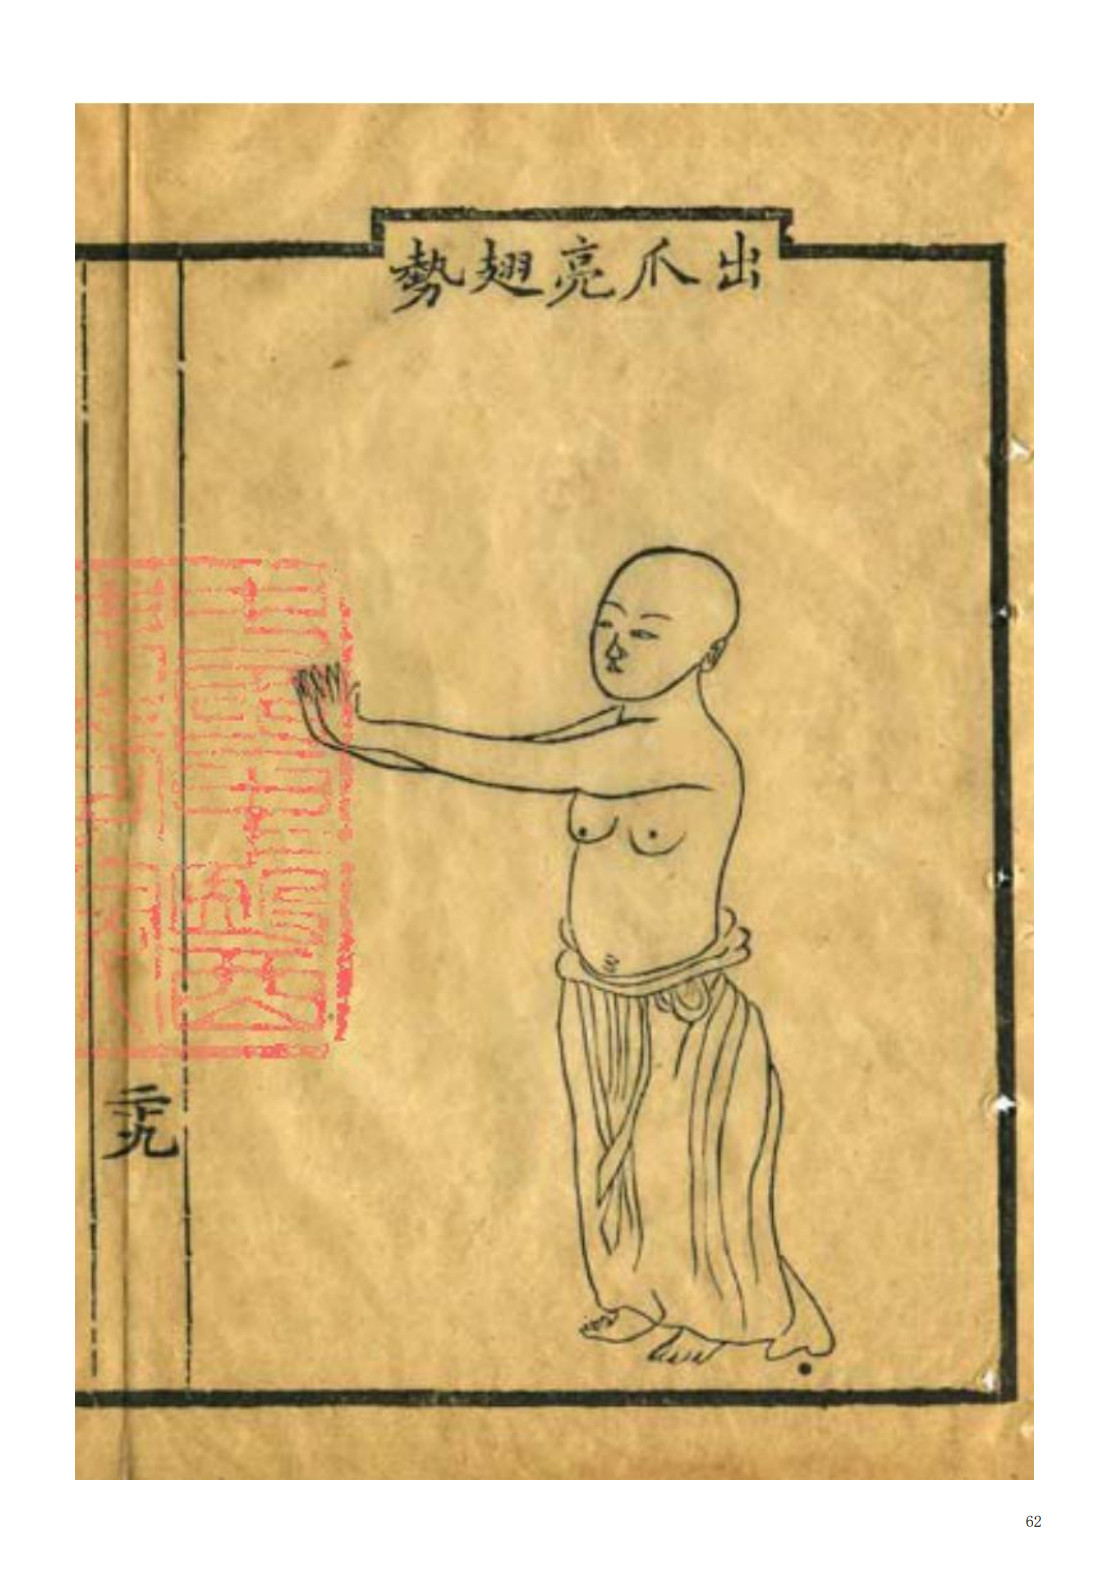 出爪亮翅勢
二十九
62